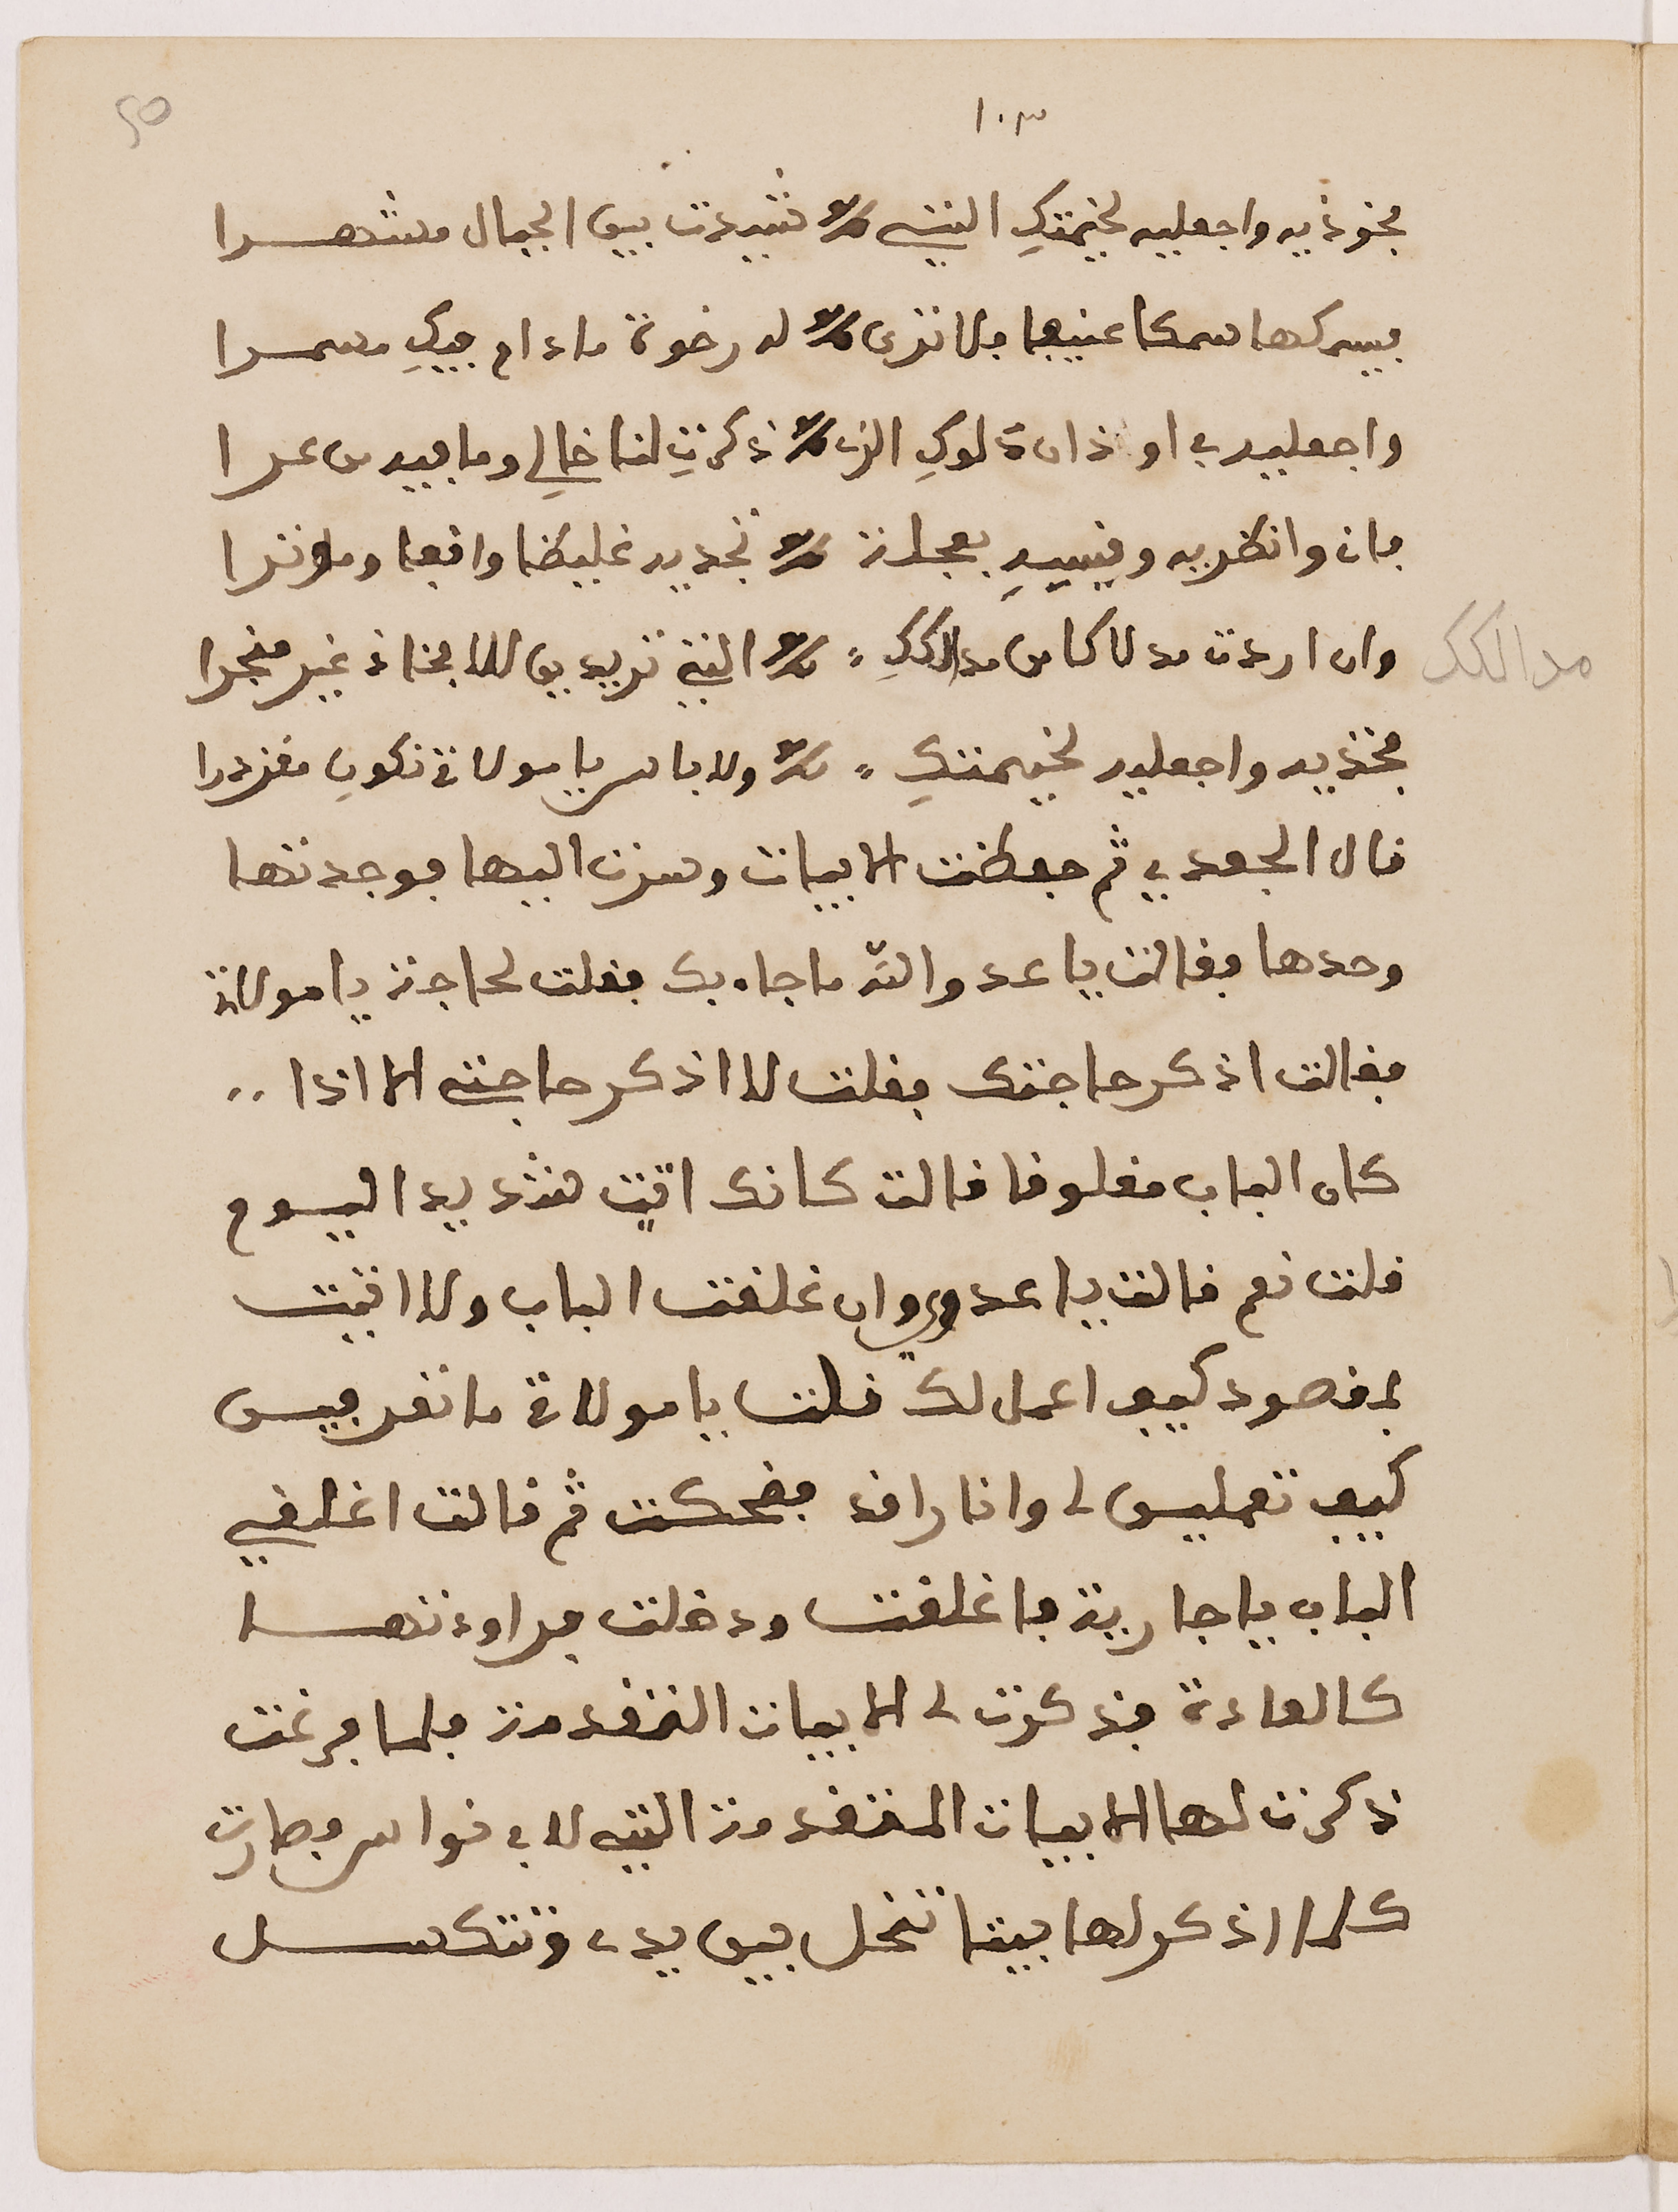 ١٠٣
٥٠
فخوذيه واجعليه لخيمتك التي شيدت بين الجبال مشهرا
فيمسكها مسكا عنيفا فلا ترى له رخوة ما دام فيك مسمرا
واجعليه في اوذان دلوك الذي ذكرت لنا خالي وما فيه من عرا
فات وانظريه وقيسيه بعجلة تجديه غليظا واقفا وموترا
وان اردت مدلاكا من مدالكك التي تريدين للافخاذ غير منجرا
مدالكك
فخذيه واجعليه لخيمتك ولا باس يا مولاتي تكون مقزدرا
قال الجعدي ثم حفظت الابيات وسرت اليها فوجدتها
وحدها فقالت يا عدو الله ما جاء بك فقلت لحاجة يا مولاتي
فقالت اذكر حاجتك فقلت لا اذكر حاجتي الا اذا
كان الباب مغلوقا قالت كانك اتيت شديد اليوم
قلت نعم قالت يا عدوي وان غلقت الباب ولا اتيت
لمقصود كيف اعمل لك قلت يا مولاتي ما تعرفيش
كيف تعمليش لي وانا راقد فضحكت ثم قالت اغلقي
الباب يا جارية فاغلقت ودخلت فراودتها
كالعادة فذكرت لي الابيات المتقدمة فلما فرغت
ذكرت لها الابيات المتقدمة التي لابي نواس فصارت
كلما اذكر لها بيتا تنحل بين يدي وتتكسل